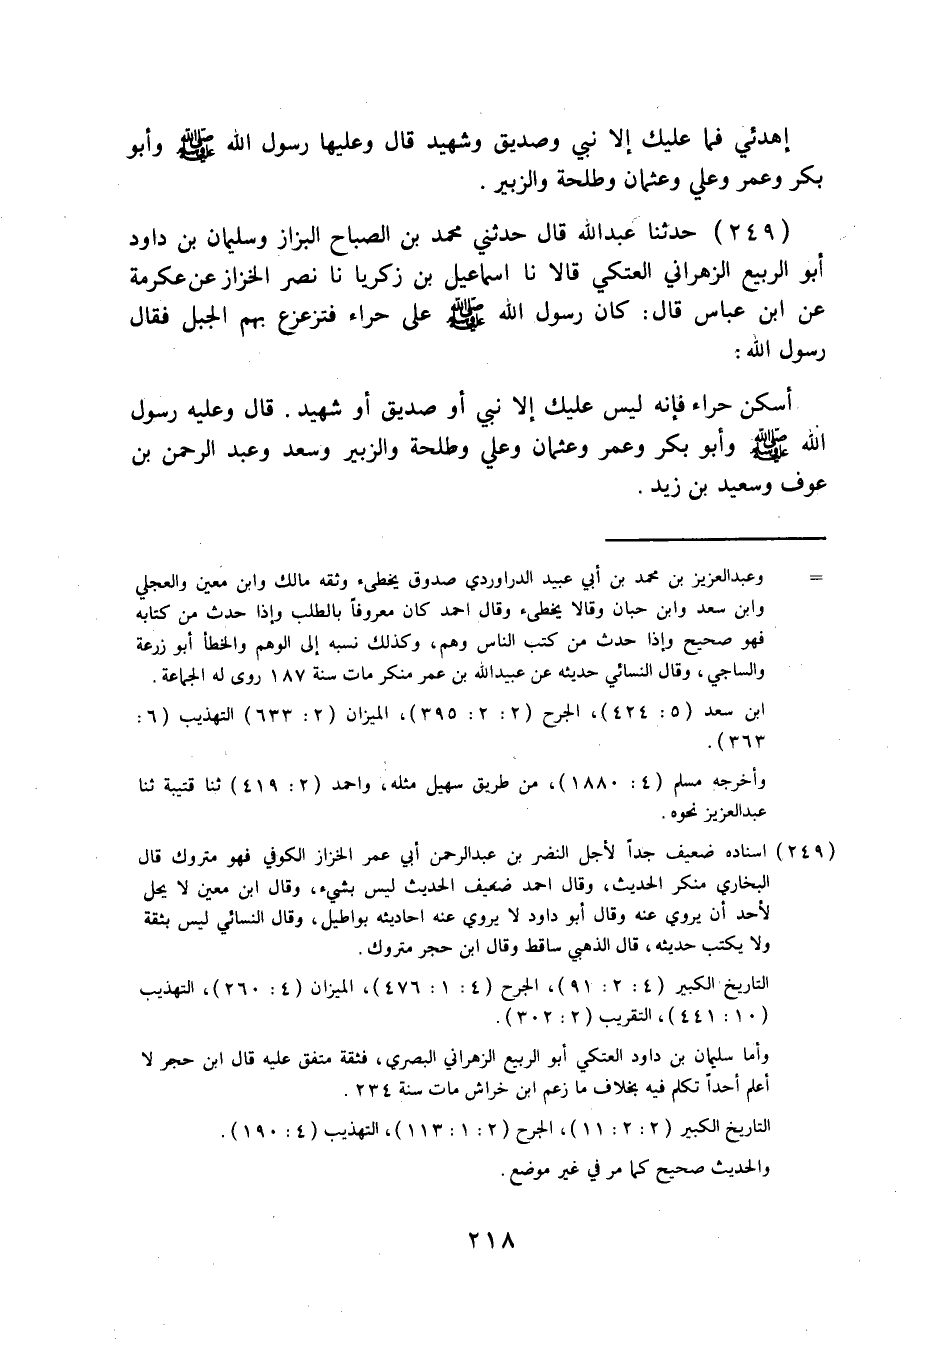 إهدئي فما عليك إلا نبي وصديق وشهيد قال وعليها رسول الله ﷺ وأبو
بكر وعمر وعلي وعثمان وطلحة والزبير .
(٢٤٩) حدثنا عبدالله قال حدثني محمد بن الصباح البزاز وسليمان بن داود
أبو الربيع الزهراني العتكي قالا نا اسماعيل بن زكريا نا نصر الخزاز عن عكرمة
عن ابن عباس قال: كان رسول الله ﷺ على حراء فتزعزع بهم الجبل فقال
رسول الله :
أسكن حراء فإنه ليس عليك إلا نبي أو صديق أو شهيد . قال وعليه رسول
الله ﷺ وأبو بكر وعمر وعثمان وعلي وطلحة والزبير وسعد وعبد الرحمن بن
عوف وسعيد بن زيد .
= وعبدالعزيز بن محمد بن أبي عبيد الدراوردي صدوق يخطىء وثقه مالك وابن معين والعجلي
وابن سعد وابن حبان وقالا يخطىء وقال احمد كان معروفاً بالطلب وإذا حدث من كتابه
فهو صحيح وإذا حدث من كتب الناس وهم، وكذلك نسبه إلى الوهم والخطأ أبو زرعة
والساجي، وقال النسائي حديثه عن عبيدالله بن عمر منكر مات سنة ١٨٧ روى له الجماعة .
ابن سعد (٥: ٤٢٤)، الجرح (٢: ٢: ٣٩٥)، الميزان (٢: ٦٣٣) التهذيب (٦:
٣٦٣).
وأخرجه مسلم (٤: ١٨٨٠)، من طريق سهيل مثله، واحمد (٢: ٤١٩) ثنا قتيبة ثنا
عبدالعزيز نحوه .
(٢٤٩) اسناده ضعيف جداً لأجل النضر بن عبدالرحمن أبي عمر الخزاز الكوفي فهو متروك قال
البخاري منكر الحديث، وقال احمد ضعيف الحديث ليس بشيء، وقال ابن معين لا يحل
لأحد أن يروي عنه وقال أبو داود لا يروي عنه احاديثه بواطيل، وقال النسائي ليس بثقة
ولا يكتب حديثه، قال الذهبي ساقط وقال ابن حجر متروك .
التاريخ الكبير (٤: ٢: ٩١)، الجرح (٤: ١: ٤٧٦)، الميزان (٤: ٢٦٠)، التهذيب
(١٠: ٤٤١)، التقريب (٢: ٣٠٢).
وأما سليمان بن داود العتكي أبو الربيع الزهراني البصري، فثقة متفق عليه قال ابن حجر لا
أعلم أحداً تكلم فيه بخلاف ما زعم ابن خراش مات سنة ٢٣٤ .
التاريخ الكبير (٢: ٢: ١١)، الجرح (٢: ١: ١١٣)، التهذيب (٤: ١٩٠).
والحديث صحيح كما مر في غير موضع .
٢١٨